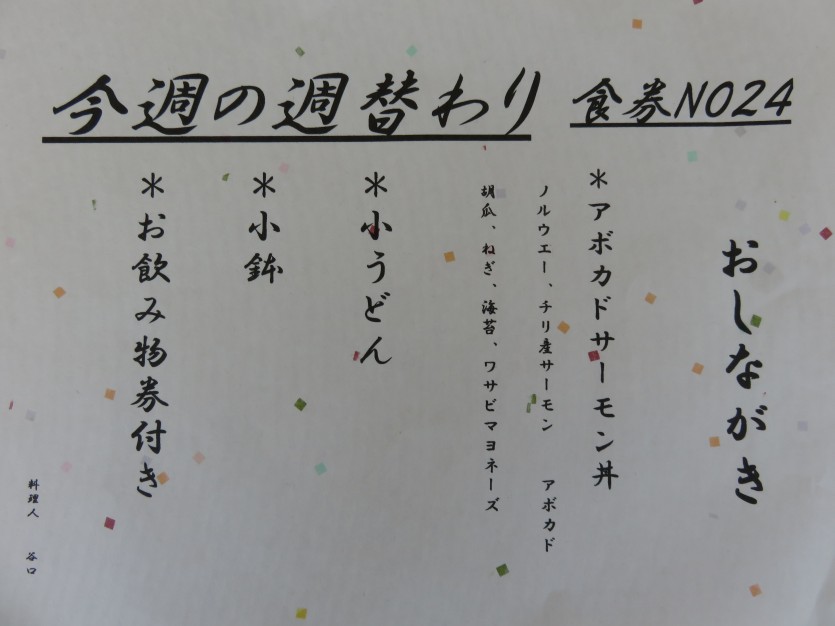 今週の週替わり
食券NO24
おしながき
＊アボカドサーモン丼
ノルウエー、チリ産サーモン　アボカド
胡瓜、ねぎ、海苔、ワサビマヨネーズ
＊小うどん
＊小鉢
＊お飲み物券付き
料理人　谷口